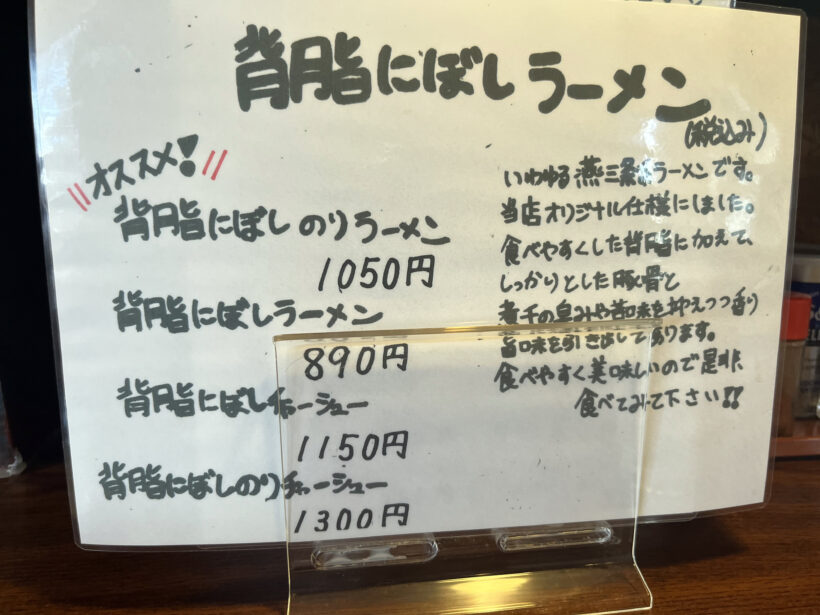 背脂にぼしラーメン
(税込み)
オススメ!
背脂にぼしのりラーメン
1050円
背脂にぼしラーメン
890円
背脂にぼしチャーシュー
1150円
背脂にぼしのりチャーシュー
1300円
いわゆる燕三条系ラーメンです。
当店オリジナル仕様にしました。
食べやすくした背脂に加えて、
しっかりとした豚骨と
煮干の臭みや苦味を抑えつつ香り
旨味を引き出してあります。
食べやすく美味しいので是非、
食べてみて下さい!!